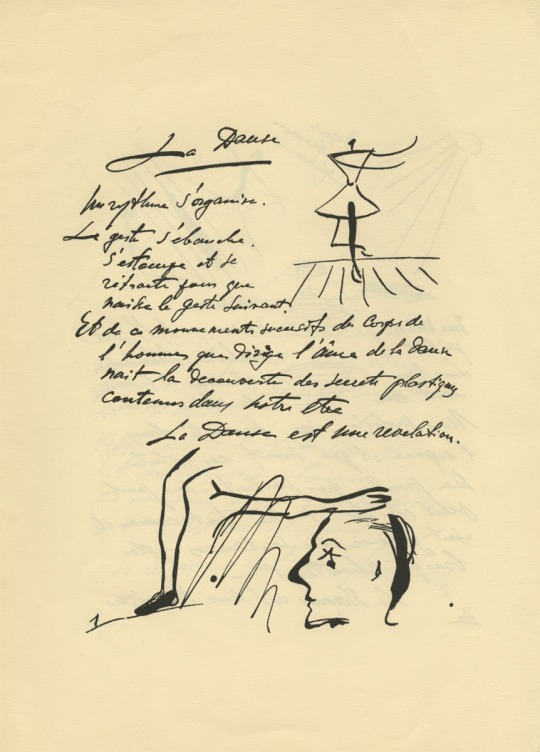 La Danse
Un rythme s'organise.
Le geste s'ébauche.
S'estompe et se
rétracte pour que
naisse le geste suivant.
Et de ce mouvements sucessifs du corps de
l'hommes que dirige l'âme de la danse
nait la decouverte des secrets plastiques
contenus dans notre être
La Danse est une revelation.
1